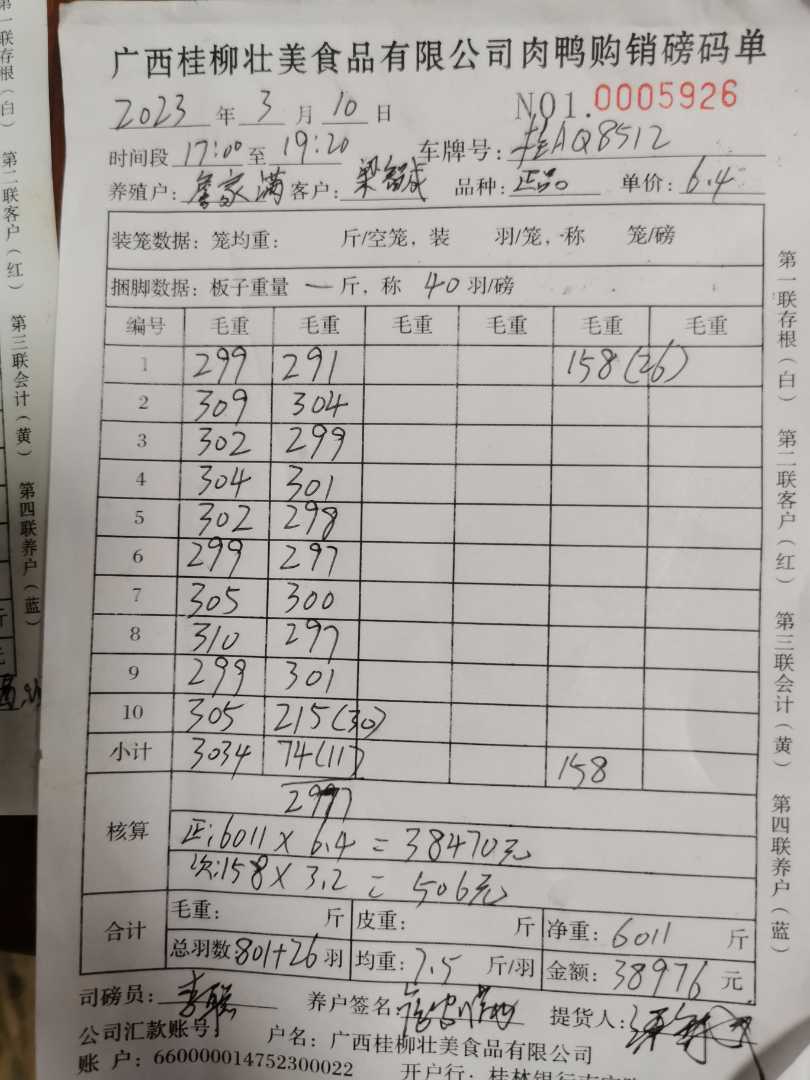 广西桂柳壮美食品有限公司肉鸭购销磅码单
2023 年 3 月 10 日 NO1.0005926
时间段 17:00 至 19:20 车牌号: 桂AQ8512
养殖户: 家满 客户: 梁 品种: 正品 单价: 6.4
装笼数据: 笼均重: 斤/空笼, 装 羽/笼, 称 笼/磅
捆脚数据: 板子重量 一 斤, 称 40 羽/磅
编号 毛重 毛重 毛重 毛重 毛重 毛重
1 299 291 158(26)
2 309 304
3 302 299
4 304 301
5 302 298
6 299 297
7 305 300
8 310 297
9 299 301
10 305 215(30)
小计 3034 74(11) 158
2977
核算 正:6011 X 6.4 = 38470元
次:158 X 3.2 = 506元
合计 毛重: 斤 皮重: 斤 净重: 6011 斤
总羽数: 801+26 羽 均重: 7.5 斤/羽 金额: 38976 元
司磅员: 李 养户签名: 提货人:
公司汇款账号: 户名: 广西桂柳壮美食品有限公司
账 户: 660000014752300022 开户行: 桂林银行
第一联存根(白) 第二联客户(红) 第三联会计(黄) 第四联养户(蓝)
第一联存根(白) 第二联客户(红) 第三联会计(黄) 第四联养户(蓝)